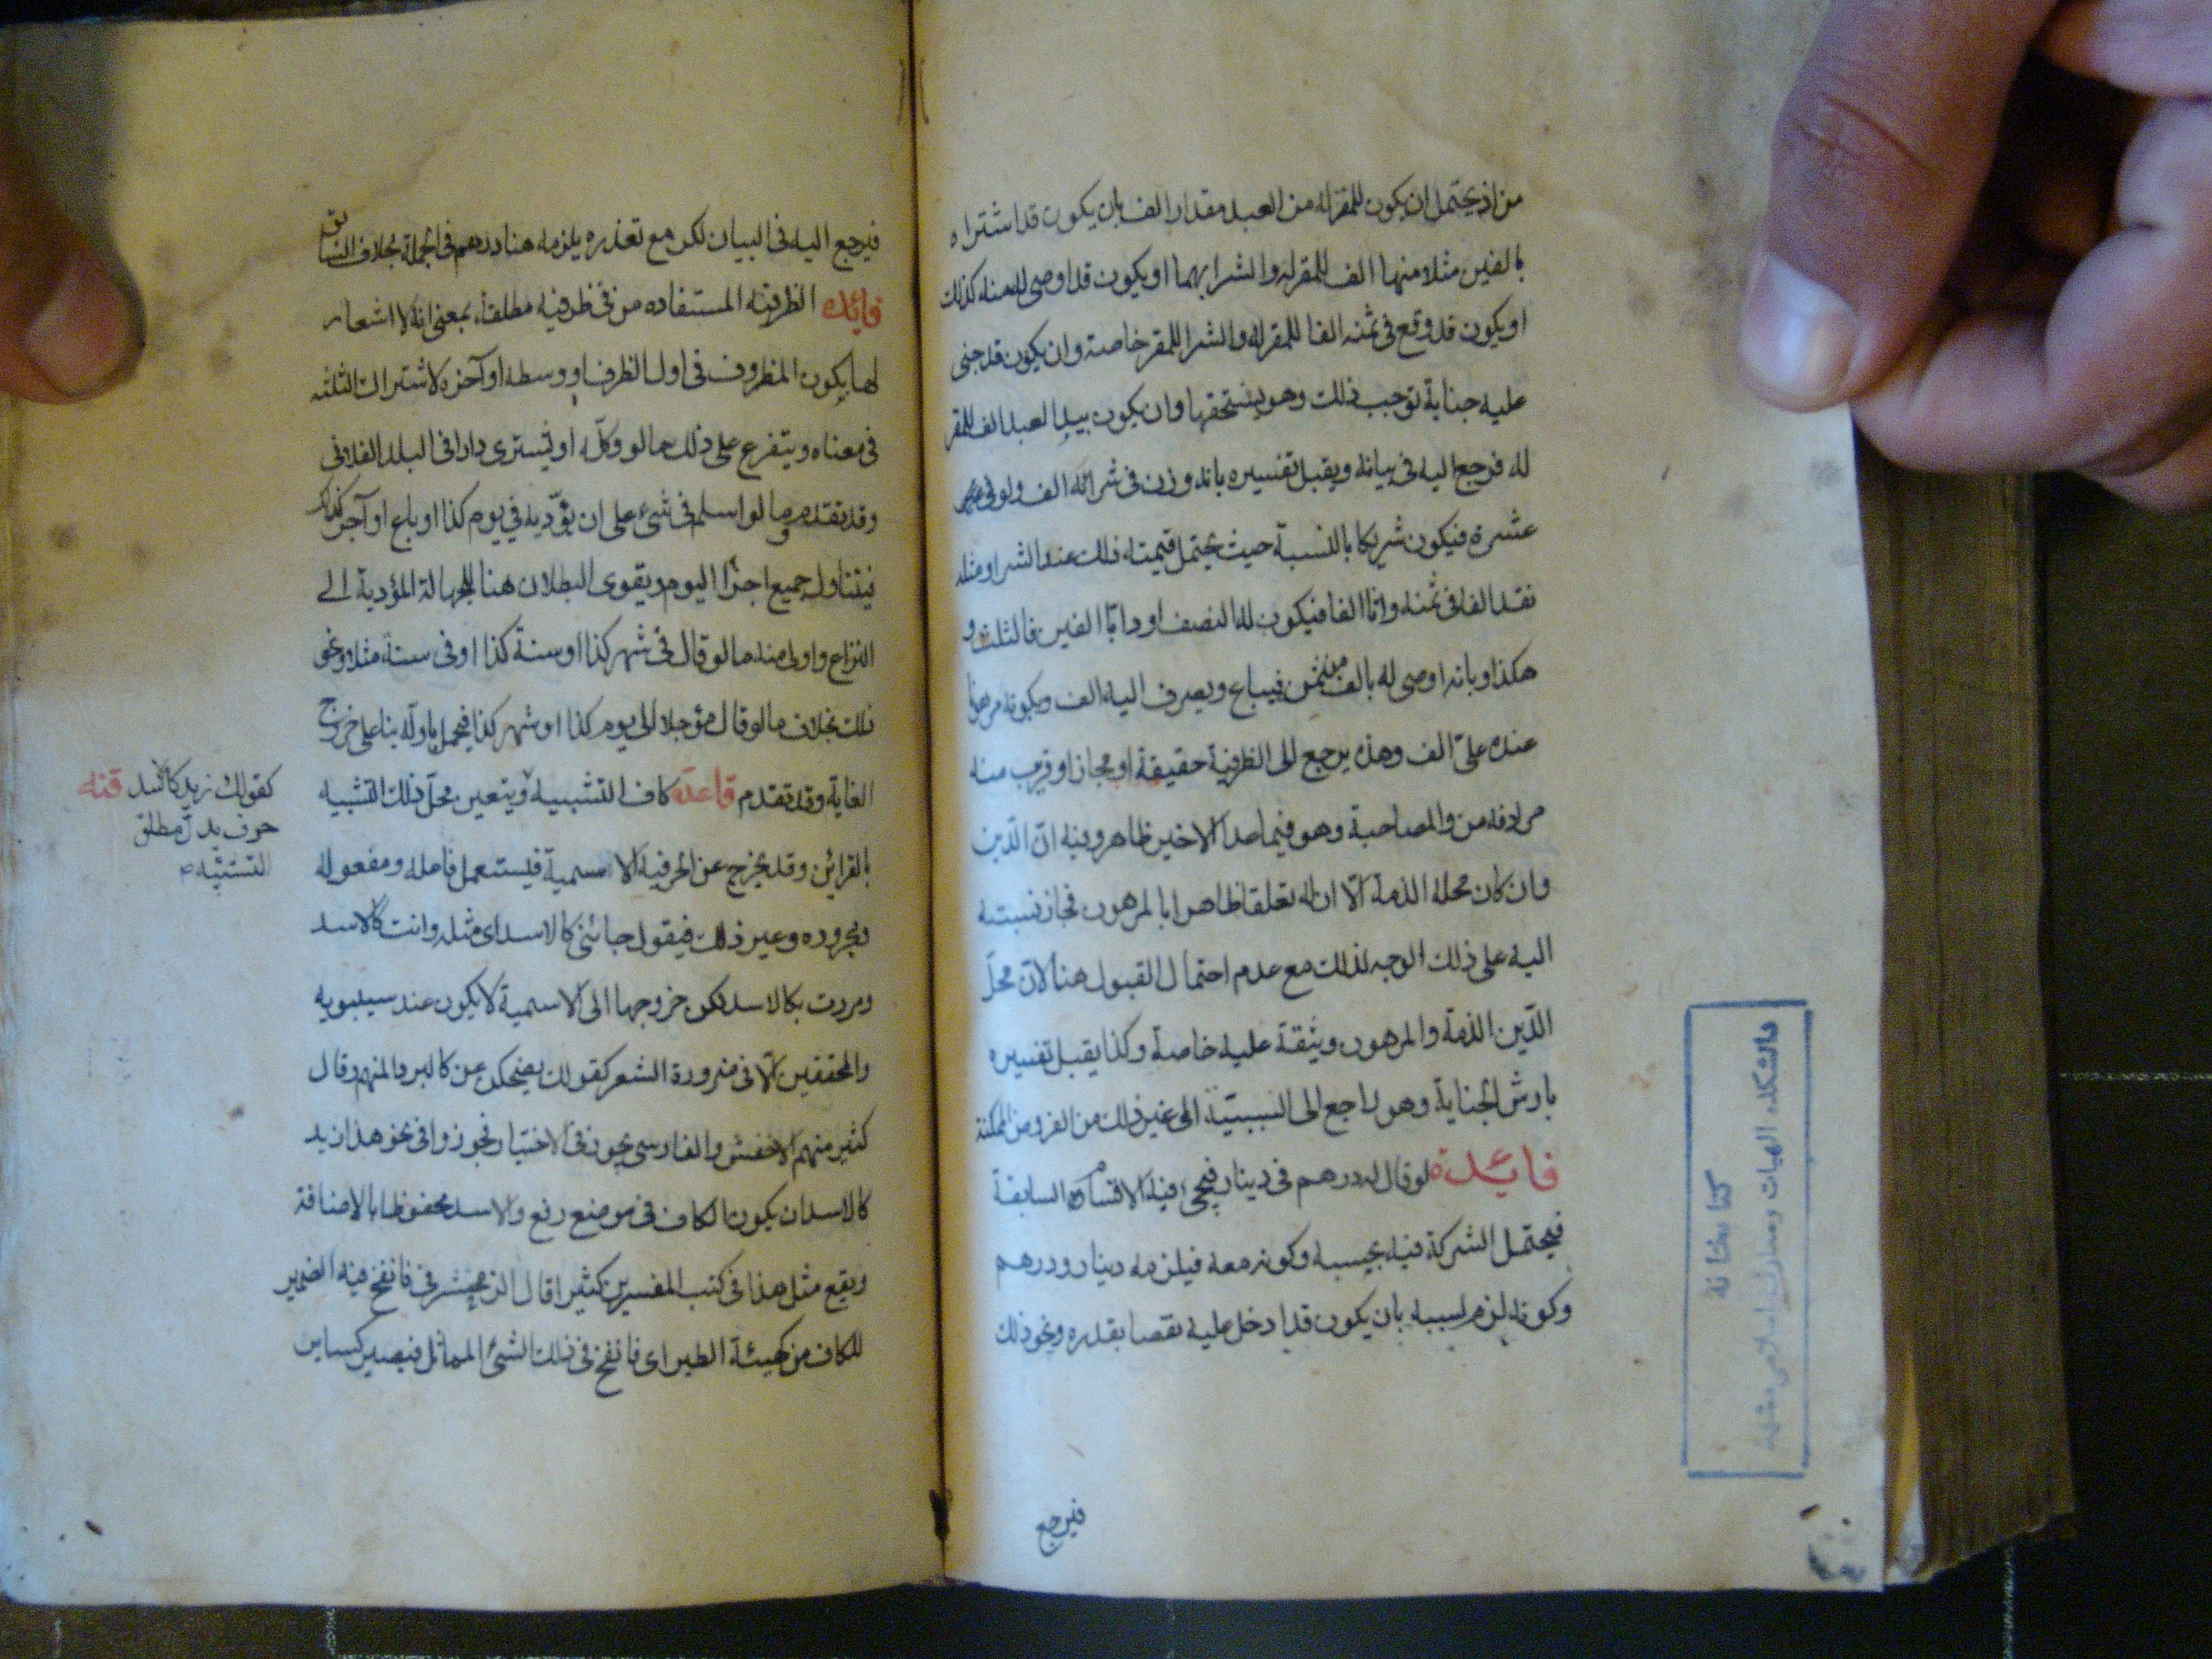 من اذ يحتمل ان يكون للمقر له من العبد مقدار الف بان يكون قد اشتراه
بالفين مثلا منها الف للمقر له والشرا بهما او يكون قد اوصى له منه كذلك
او يكون قد وقع فى ثمنه الفا للمقر له والشرا للمقر خاصة وان يكون قد جنى
عليه جناية توجب ذلك وهو يستحقها وان يكون بيد العبد الف للمقر
له فرجع اليه فى بيانه ويقبل تفسيره بانه وزن فى شرائه الف ولو فى
عشرة فيكون شريكا بالنسبة حيث يحتمل قيمته ذلك عند الشرا ومثله
نقد الفا فى ثمنه وانا الفا فيكون له النصف او وانا الفين فالثلث و
هكذا وبانه اوصى له بالف من ثمن فيباع ويصرف اليه الف وبكونه مرهونا
عنده على الف وهذه يرجع الى الظرفية حقيقة او مجاز او قريب منه
مرادفه من والمصاحبة وهو فيما عدا الاخير ظاهر وفيه ان الدين
وان كان محله الذمة الا ان له تعلقا ظاهرا بالمرهون فجاز نسبته
اليه على ذلك الوجه لذلك مع عدم احتمال القبول هنا لان محل
الدين الذمة والمرهون وثيقة عليه خاصة وكذا يقبل تفسيره
بارش الجناية وهو راجع الى السببية الى غير ذلك من الفروض الممكنة
فايدة لو قال له درهم فى دينار فيجئ فيه الاقسام السابقة
فيحتمل الشركة فيه بحسبه وكونه معه فيلزمه دينار ودرهم
وكونه لزم لسببه بان يكون قد ادخل عليه نقصا بقدره ونحو ذلك
فيرجع
كتابخانة
دانشكده الهيات ومعارف اسلامى مشهد
فيرجع اليه فى البيان لكن مع تعذره يلزمه هنا درهم فى الجملة بخلاف السابق
فايده الظرفية المستفاده من فى ظرفيه مطلقة بمعنى انه لا اشعار
لها بكون المظروف فى اول الظرف او وسطه او آخره لاشتراك الثلثه
فى معناه ويتفرع على ذلك ما لو وكله ان يشترى دارا فى البلد الفلانى
وقد تقدم وما لو اسلم فى شئ على ان يؤديه فى يوم كذا او باع او آجر كذلك
فيتناول جميع اجزا اليوم ويقوى البطلان هنا للجهالة المؤدية الى
النزاع واولى منه ما لو قال فى شهر كذا او سنة كذا او فى ستة مثلا ونحو
ذلك بخلاف ما لو قال مؤجلا الى يوم كذا او شهر كذا فيحمل باوله بنا على خروج
الغاية وقد تقدم قاعدة كاف التشبيه ويتعين محل ذلك التشبيه
بالقرائن وقد يخرج عن الحرفية الى الاسمية فيستعمل فاعله ومفعوله
ومجروره وغير ذلك فيقول جائنى كالاسد اى مثله وانت كالاسد
ومررت بكالاسد لكن خروجها الى الاسمية لا يكون عند سيبويه
والمحققين الا فى ضرورة الشعر كقولك يضحكن عن كالبرد المنهم وقال
كثير منهم الاخفش والفارسى يجوز فى الاختيار فجوزوا فى نحو هذا زيد
كالاسد ان يكون الكاف فى موضع رفع والاسد محفوظا بالاضافة
ويقع مثل هذا فى كتب المفسرين كثيرا قال الزمخشرى فى فانفخ فيه الضمير
للكاف من كهيئة الطير اى فانفخ فى ذلك الشئ المماثل فيصير كساير
كقولك زيد كالاسد
حرف يدل مطلق
التشبيه